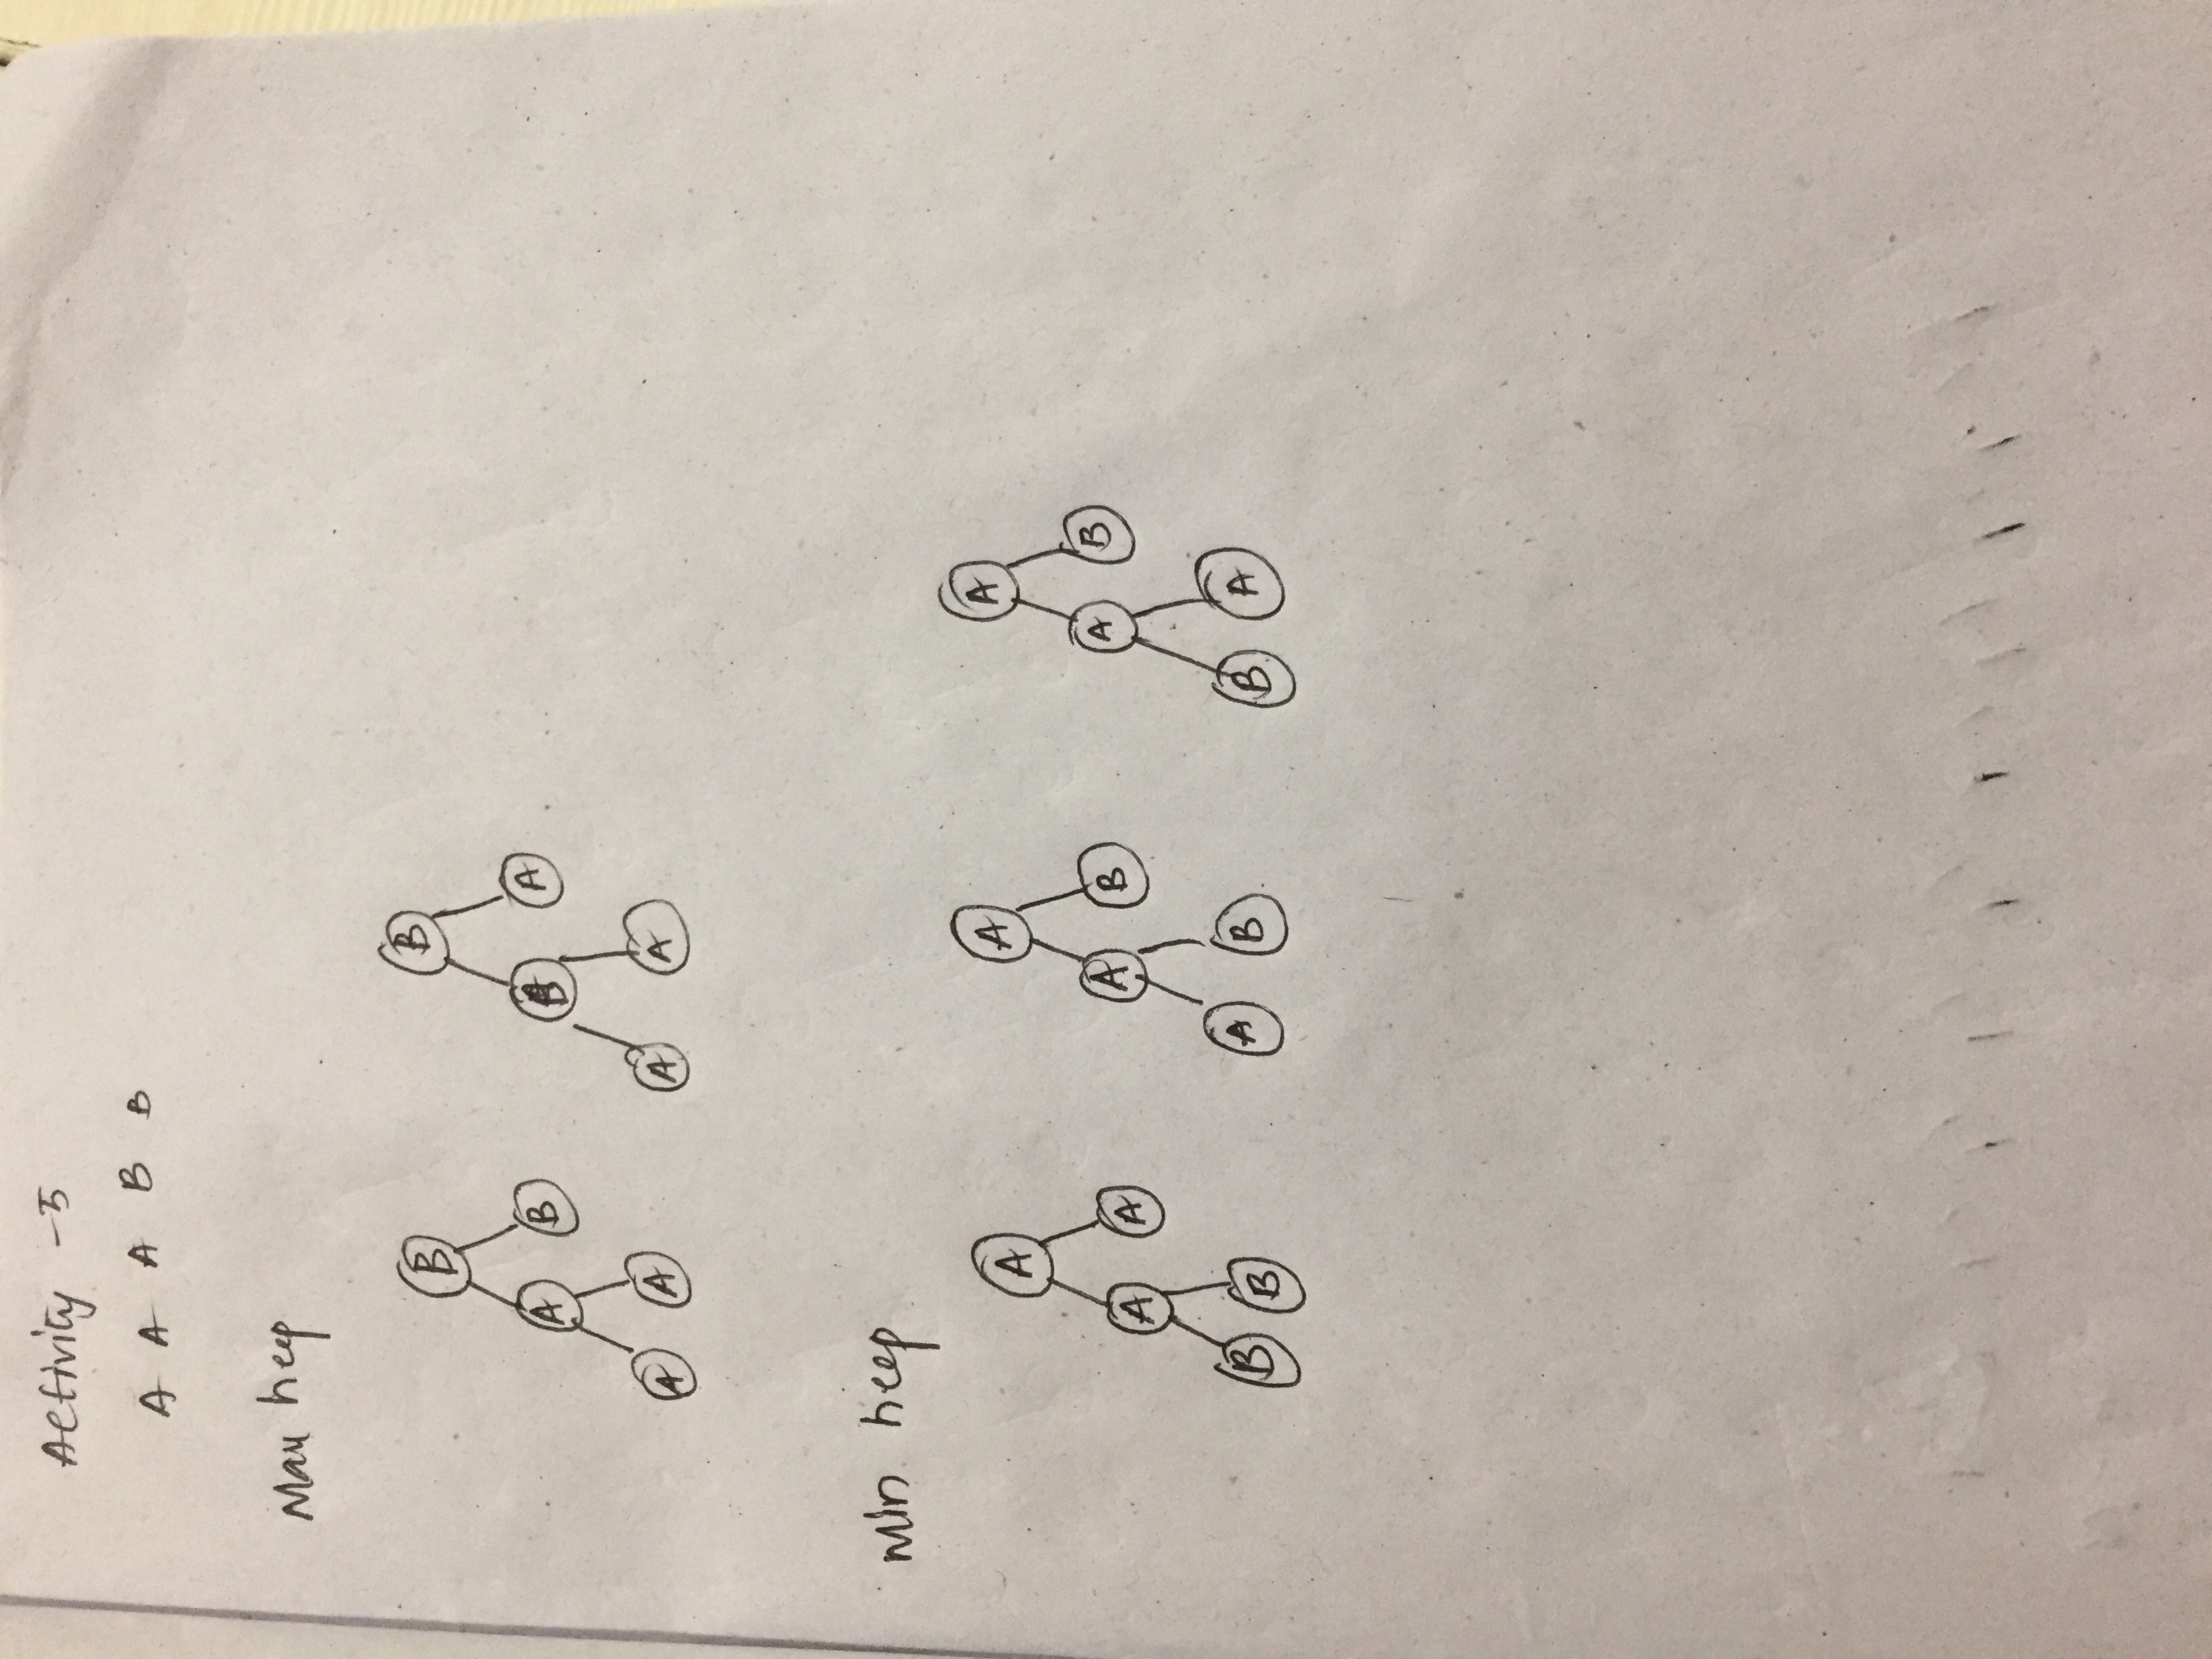 Activity -5
A A A B B
Max heep
B B
A B B A
A A A A
Min heep
A A A
A A A B A B
B B A B B A